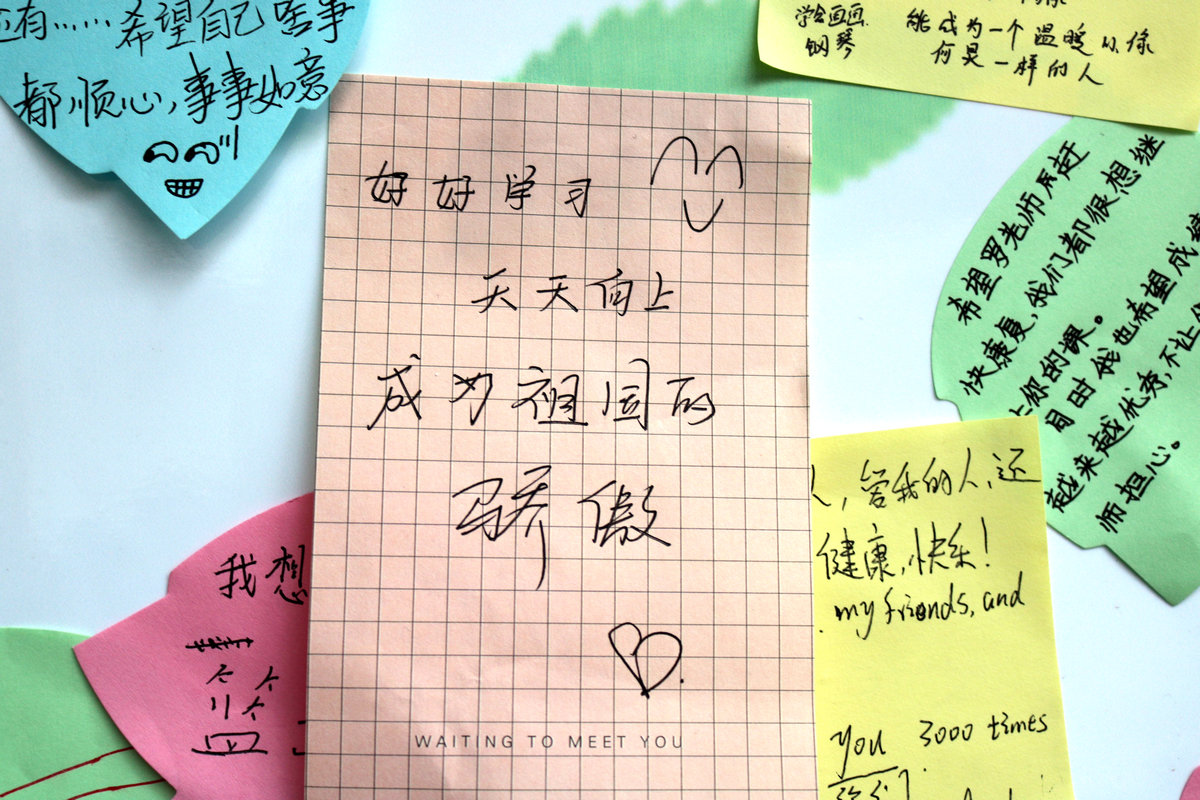 还有……希望自己啥事
都顺心，事事如意
学会画画
钢琴
能成为一个温暖的你
何是一样的人
好好学习
天天向上
成为祖国的
骄傲
WAITING TO MEET YOU
希望罗老师尽赶
快康复，我们都很想继
上你的课。
同由我也希望成绩
越来越优秀，不让
师担心。
，管我的人，还
健康，快乐！
my friends, and
you 3000 times
我想